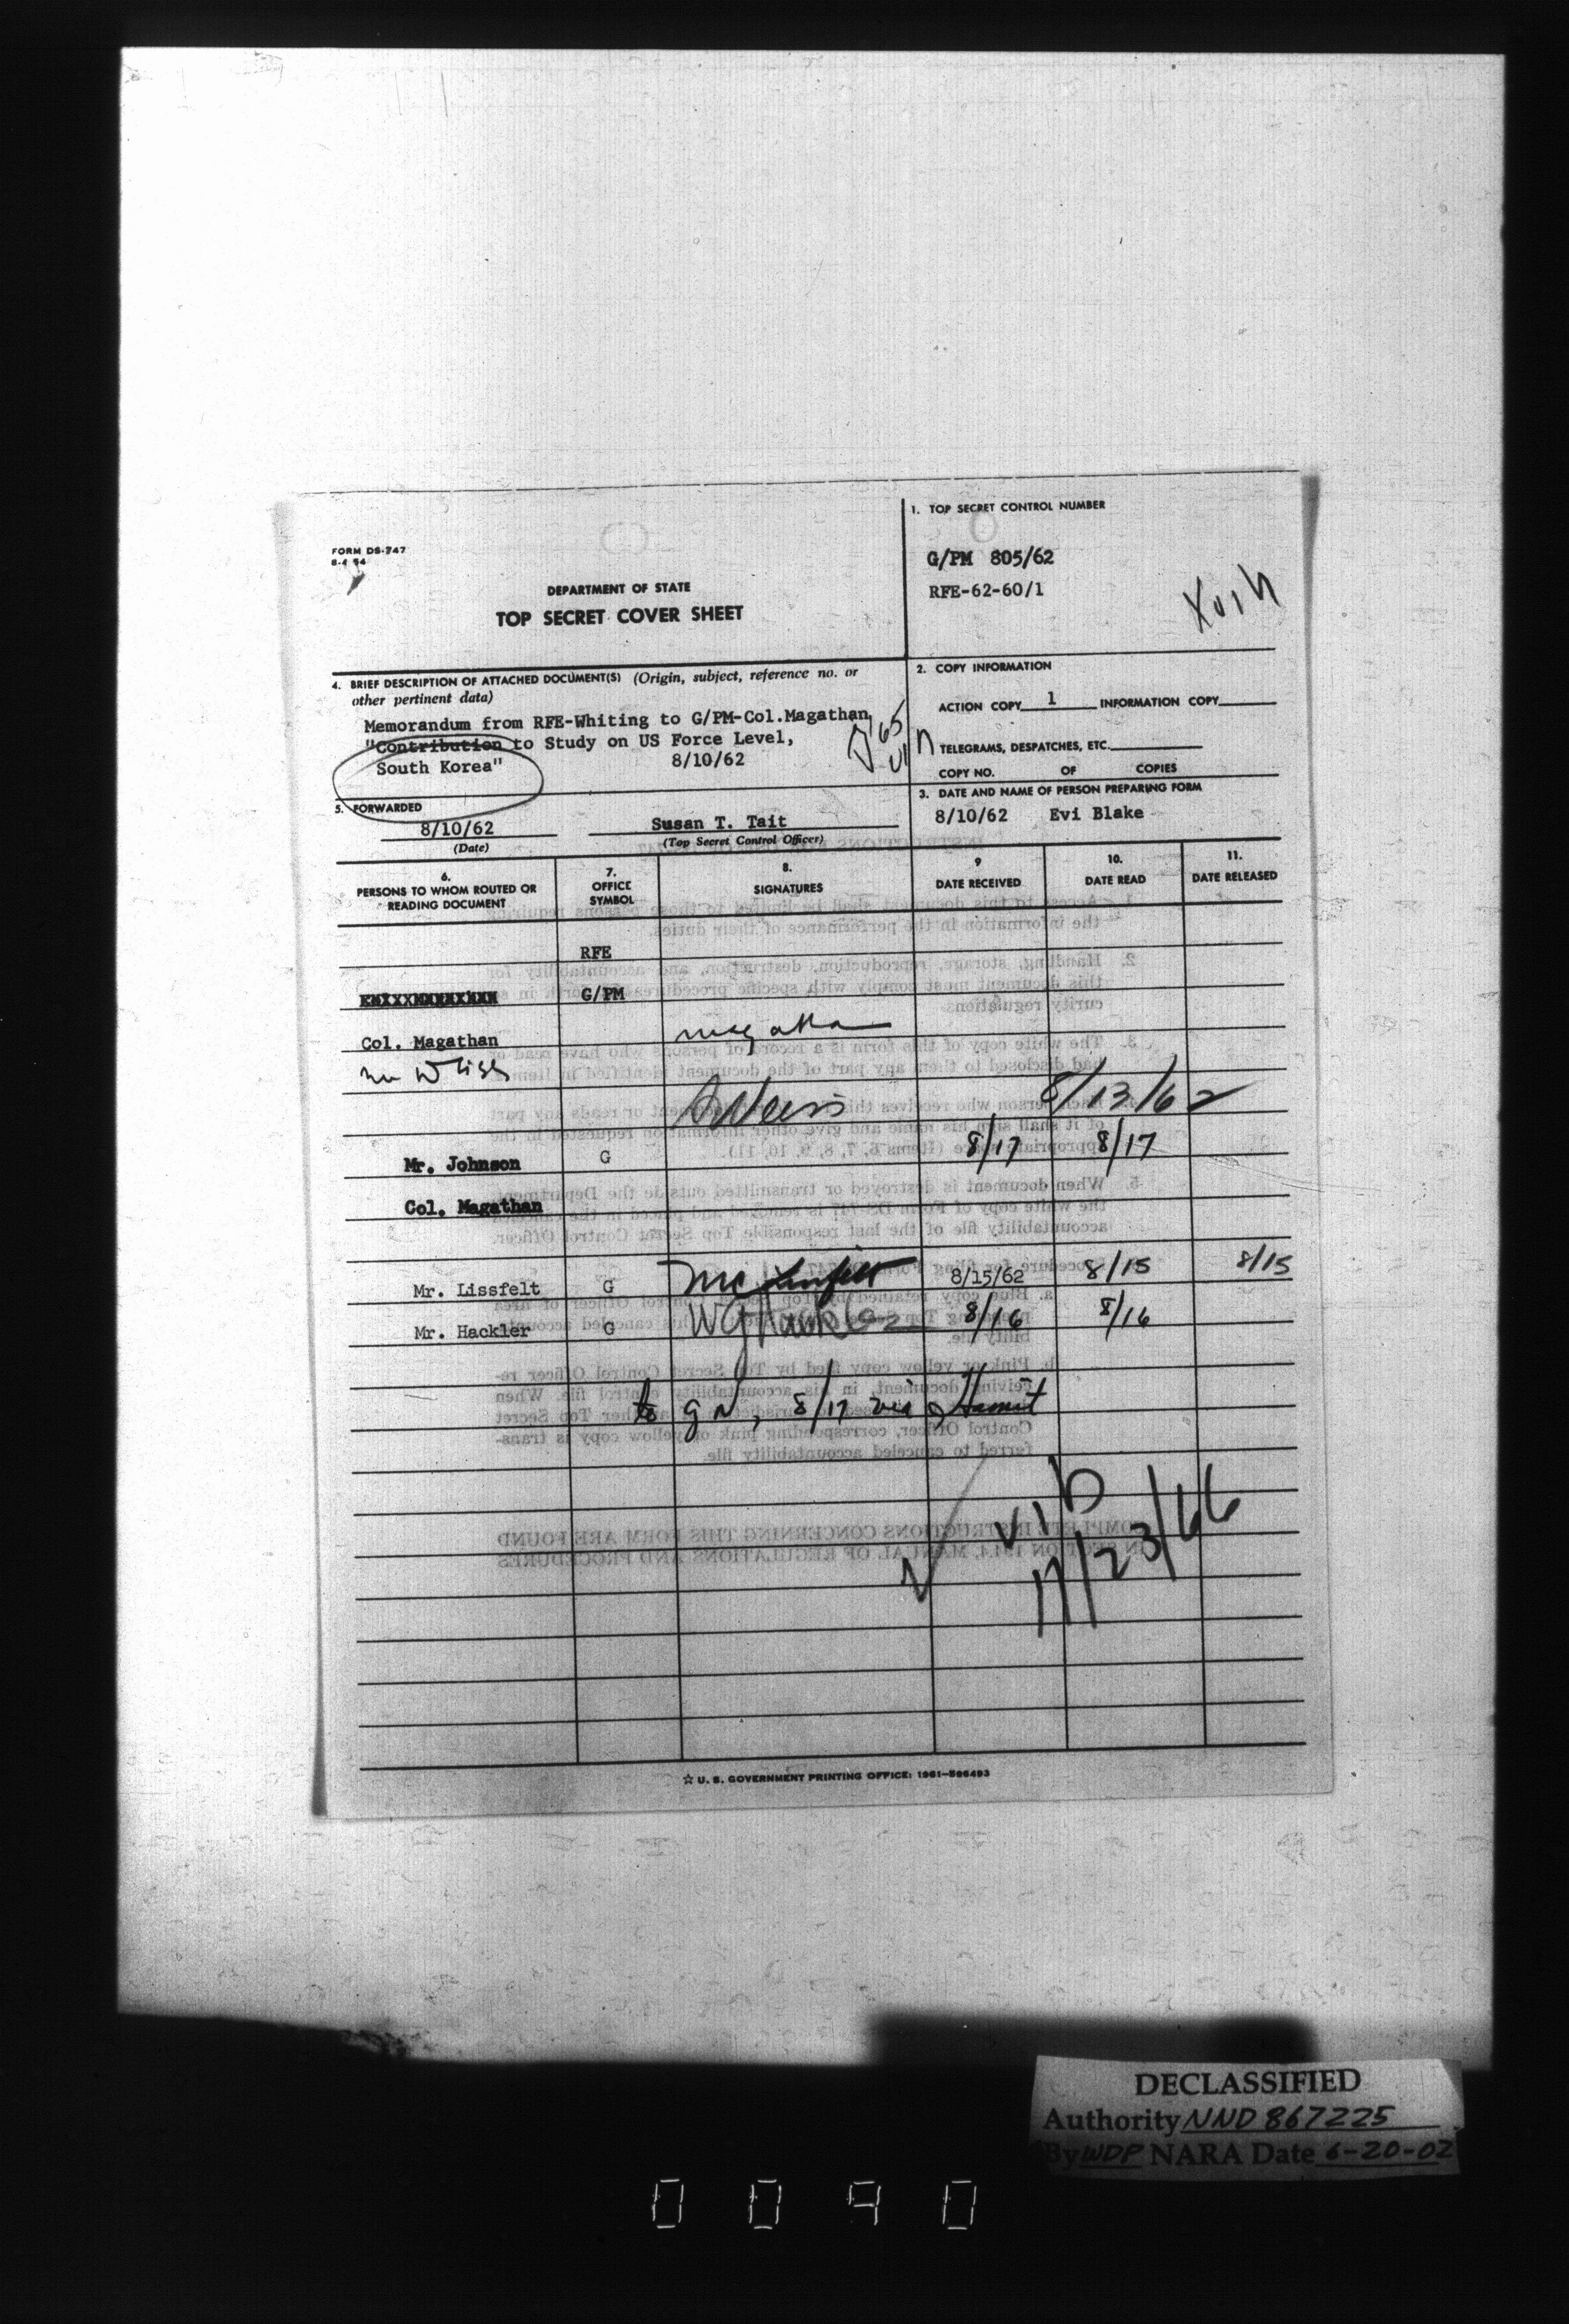 FORM DS-747
8-4 54
DEPARTMENT OF STATE
TOP SECRET COVER SHEET
1. TOP SECRET CONTROL NUMBER
G/PM 805/62
RFE-62-60/1
4. BRIEF DESCRIPTION OF ATTACHED DOCUMENT(S) (Origin, subject, reference no. or
other pertinent data)
Memorandum from RFE-Whiting to G/PM-Col.Magathan,
"Contribution to Study on US Force Level,
South Korea" 8/10/62
2. COPY INFORMATION
ACTION COPY 1 INFORMATION COPY
TELEGRAMS, DESPATCHES, ETC.
COPY NO. OF COPIES
5. FORWARDED
8/10/62 Susan T. Tait
(Date) (Top Secret Control Officer)
3. DATE AND NAME OF PERSON PREPARING FORM
8/10/62 Evi Blake
6.
PERSONS TO WHOM ROUTED OR
READING DOCUMENT
7.
OFFICE
SYMBOL
8.
SIGNATURES
9
DATE RECEIVED
10.
DATE READ
11.
DATE RELEASED
RFE
G/PM
Col. Magathan
8/13/62
Mr. Johnson G 8/17 8/17
Col. Magathan
Mr. Lissfelt G 8/15/62 8/15 8/15
Mr. Hackler G 8/16 8/16
to G N, 8/17 via
11/23/66
☆ U. S. GOVERNMENT PRINTING OFFICE: 1961—596493
DECLASSIFIED
Authority NND 867225
By WDP NARA Date 6-20-02
0 0 9 0